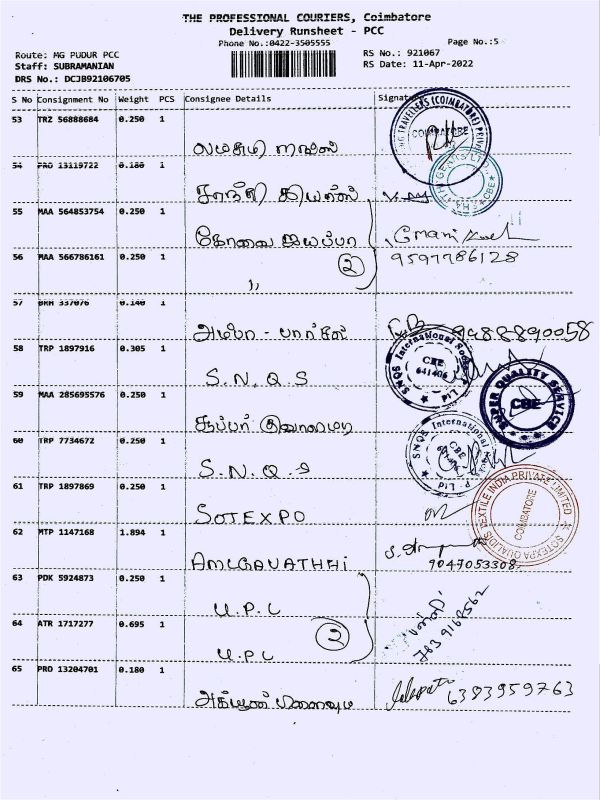 THE PROFESSIONAL COURIERS, Coimbatore
Delivery Runsheet - PCC
Phone No.:0422-3505555
Page No.:5
Route: MG PUDUR PCC
RS No.: 921067
Staff: SUBRAMANIAN
RS Date: 11-Apr-2022
DRS No.: DCJB92106705
S No Consignment No Weight PCS Consignee Details Signature
53 TRZ 56888684 0.250 1
54 PRO 13119722 0.180 1
சாந்தி கியர்ஸ்
55 MAA 564853754 0.250 1
கோவை ஐயப்பா
56 MAA 566786161 0.250 1
2
9597786128
"
57 BRM 337076 0.140 1
9488890058
58 TRP 1897916 0.305 1
S.N.Q.S
SNQS International Socks P Ltd
CBE
641406
59 MAA 285695576 0.250 1
SUPER QUALITY SERVICE
CBE
60 TRP 7734672 0.250 1
S.N.Q.S
61 TRP 1897869 0.250 1
SOTEXPO
SOTEXPA QUALIDIS TEXTILE INDIA PRIVATE LIMITED
COIMBATORE
62 MTP 1147168 1.894 1
9047053308
63 PDK 5924873 0.250 1
U.P.L
64 ATR 1717277 0.695 1
2
U.P.L
65 PRO 13204701 0.180 1
6383959763